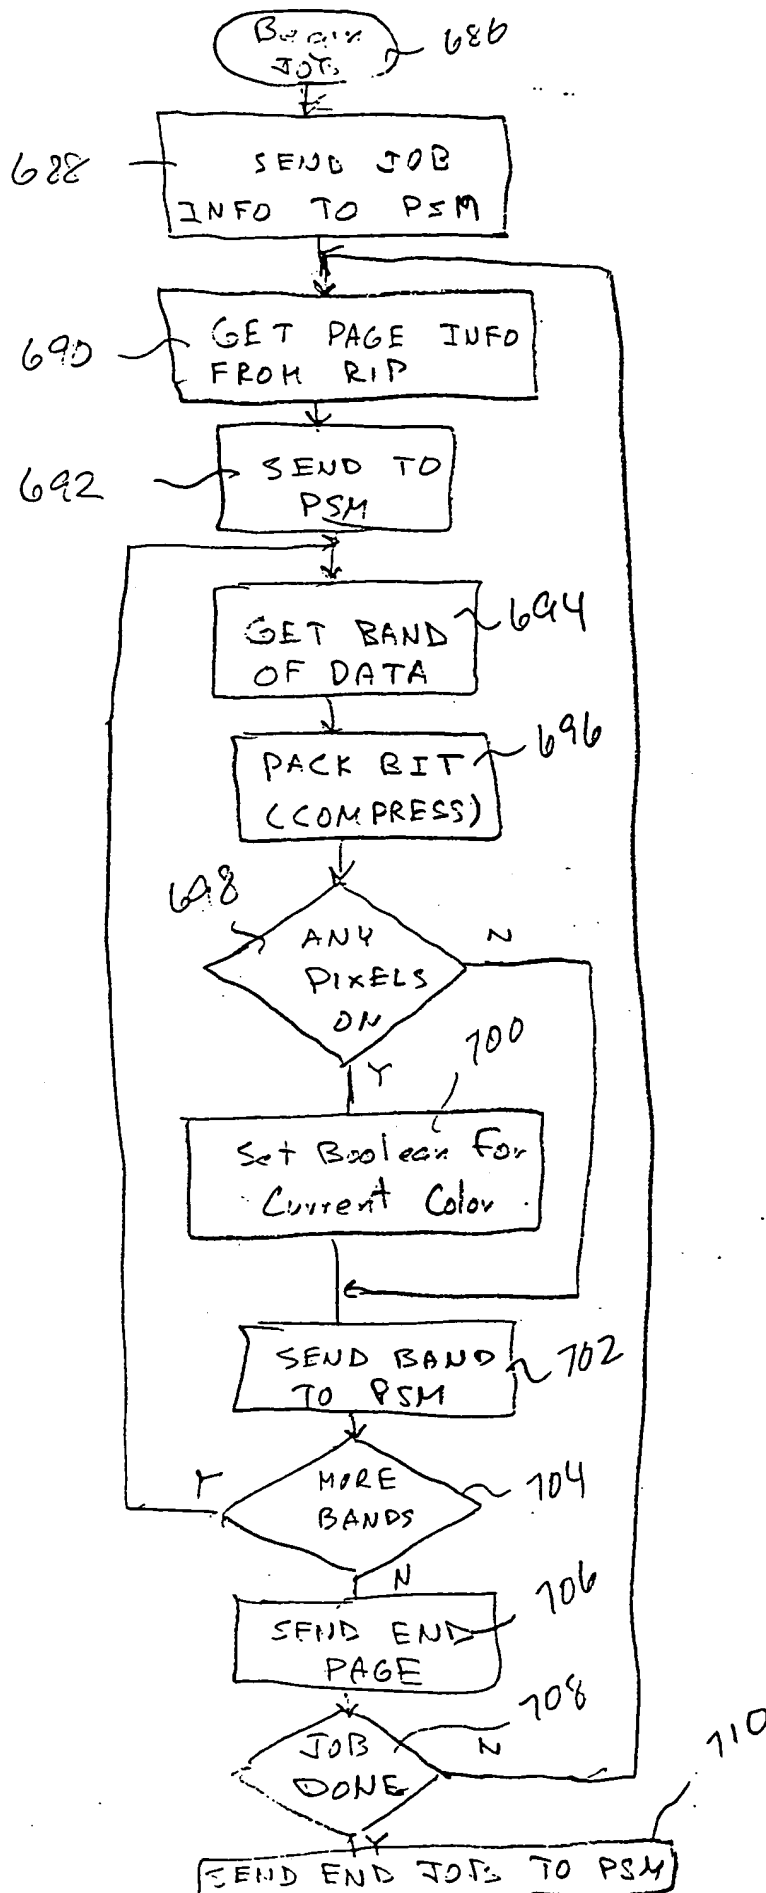 Begin 686
Job
688 SEND JOB
INFO TO PSM
690 GET PAGE INFO
FROM RIP
692 SEND TO
PSM
GET BAND 694
OF DATA
PACK BIT 696
(COMPRESS)
698 ANY N
PIXELS
ON
Y 700
Set Boolean For
Current Color
SEND BAND 702
TO PSM
Y MORE 704
BANDS
N
SEND END 706
PAGE
708
JOB N
DONE
Y 710
SEND END JOB TO PSM